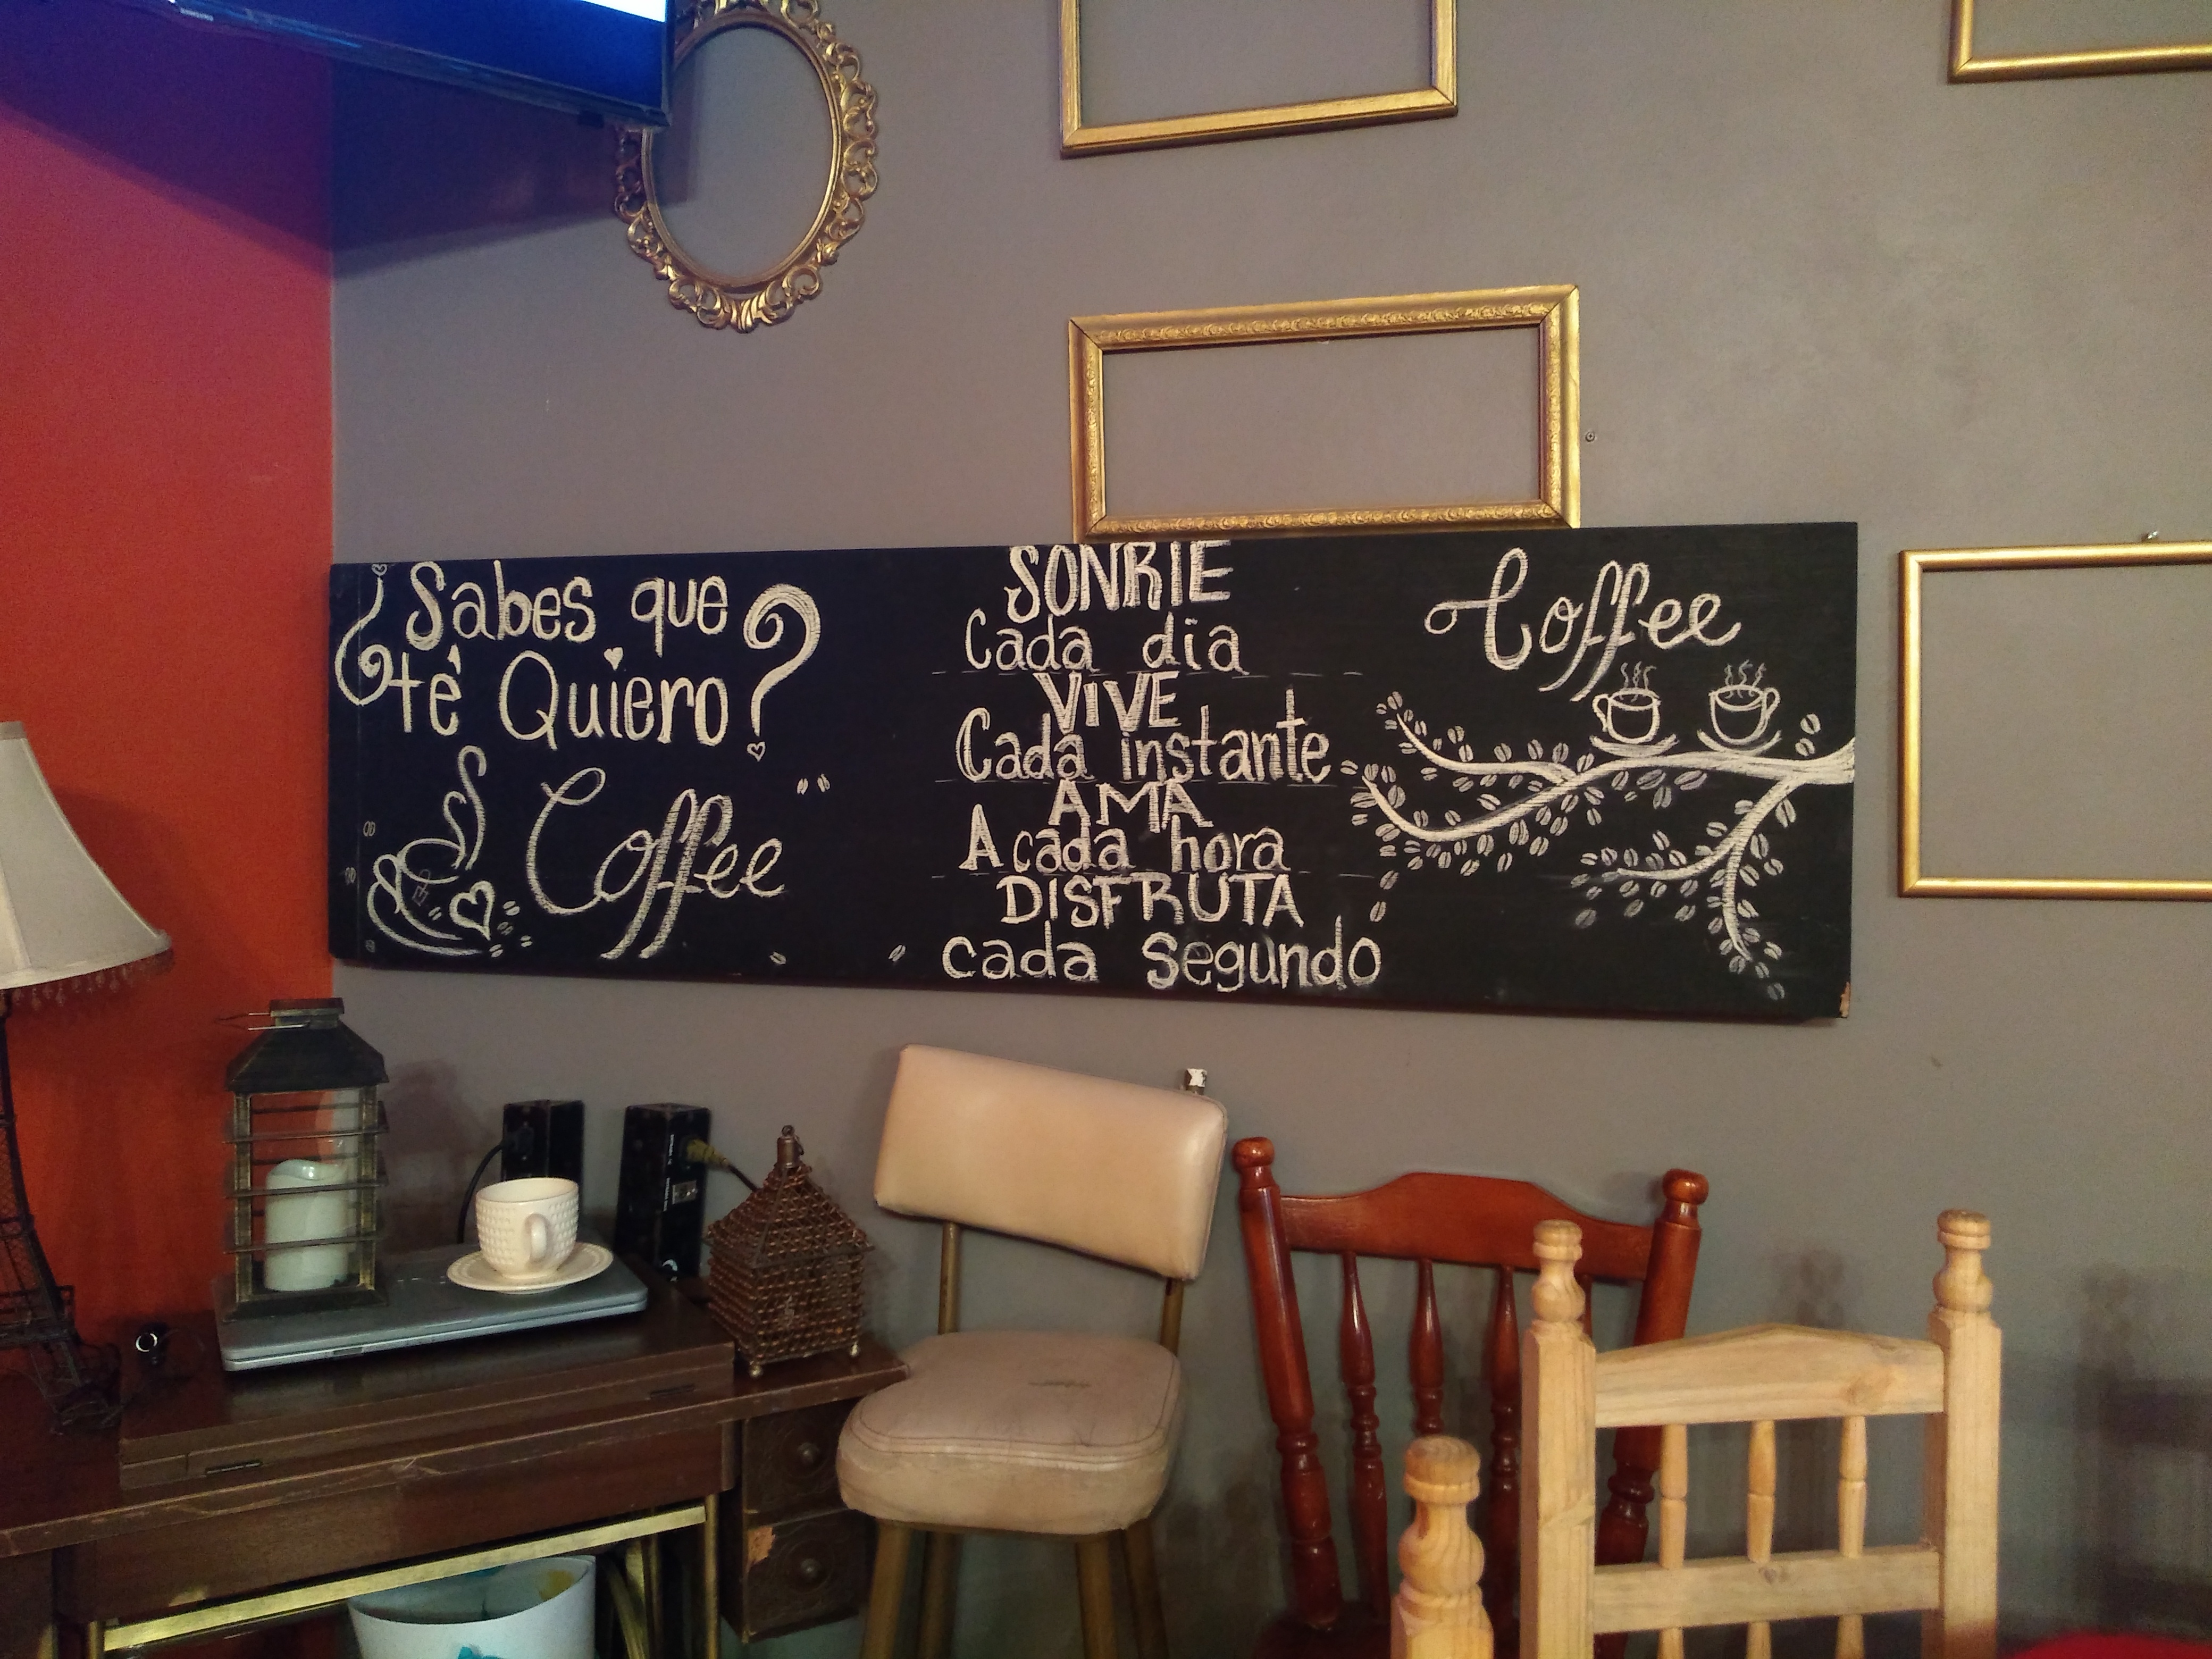 ¿Sabes que
té Quiero?
Coffee
SONRIE
Cada dia
VIVE
Cada instante
AMA
A cada hora
DISFRUTA
cada segundo
Coffee